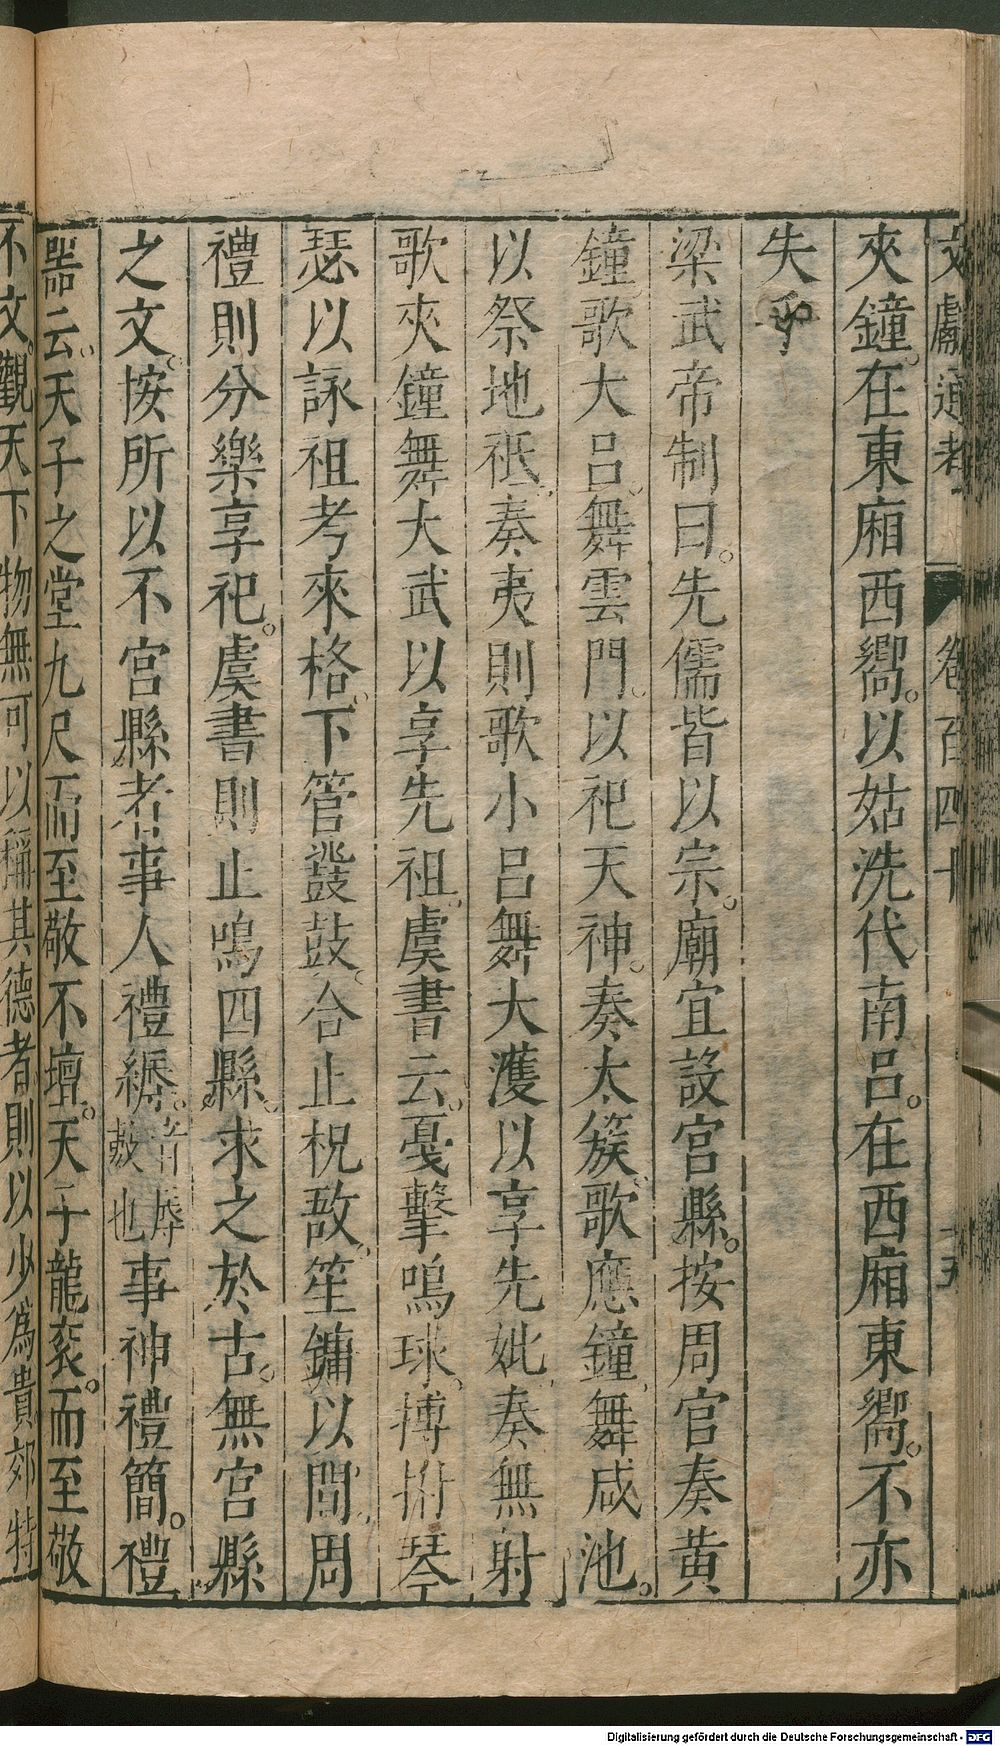 文獻通考 卷百四十 十五
夾鐘。在東廂西嚮。以姑洗代南呂。在西廂東嚮。不亦
失乎
梁武帝制曰。先儒皆以宗。廟宜設宮縣。按周官奏黃
鐘。歌大呂。舞雲門。以祀天神。奏太簇。歌應鐘。舞咸池。
以祭地祇。奏夷則歌小呂舞大濩以享先妣。奏無射
歌夾鐘舞大武以享先祖。虞書云。戛擊鳴球。搏拊琴
瑟以詠祖考來格。下管鼗鼓。合止柷敔。笙鏞以間。周
禮則分樂享祀。虞書則止鳴四縣。求之於古。無宮縣
之文。按所以不宮縣者事人禮縟。事神禮簡。禮
器云。天子之堂九尺而至敬不壇。天子龍袞。而至敬
不文。觀天下物無可以稱其德者則以少為貴郊特
Digitalisierung gefördert durch die Deutsche Forschungsgemeinschaft - DFG